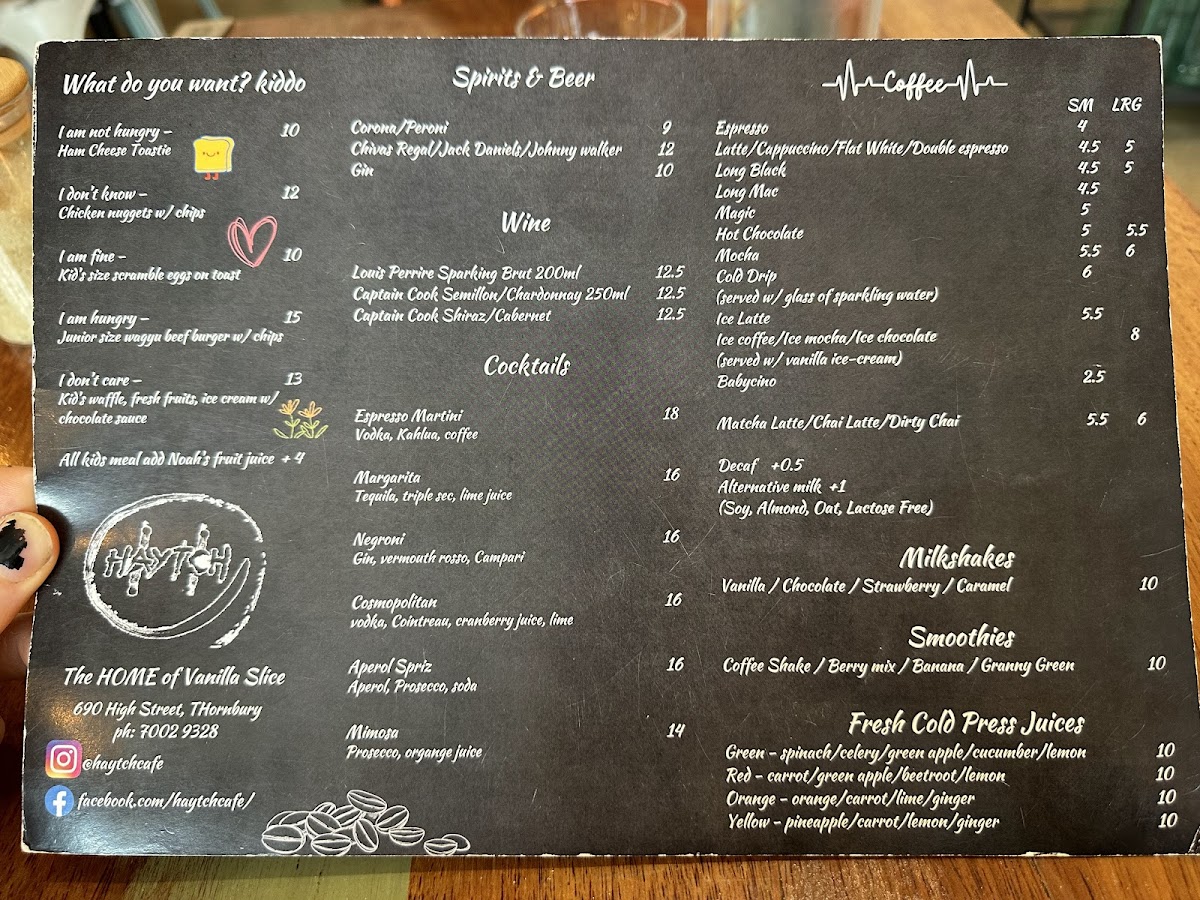 What do you want? kiddo
I am not hungry – 10
Ham Cheese Toastie
I don't know – 12
Chicken nuggets w/ chips
I am fine – 10
Kid's size scramble eggs on toast
I am hungry – 15
Junior size wagyu beef burger w/ chips
I don't care – 13
Kid's waffle, fresh fruits, ice cream w/
chocolate sauce
All kids meal add Noah's fruit juice + 4
HAYTCH
The HOME of Vanilla Slice
690 High Street, THornbury
ph: 7002 9328
@haytchcafe
facebook.com/haytchcafe/
Spirits & Beer
Corona/Peroni 9
Chivas Regal/Jack Daniels/Johnny walker 12
Gin 10
Wine
Louis Perrire Sparking Brut 200ml 12.5
Captain Cook Semillon/Chardonnay 250ml 12.5
Captain Cook Shiraz/Cabernet 12.5
Cocktails
Espresso Martini 18
Vodka, Kahlua, coffee
Margarita 16
Tequila, triple sec, lime juice
Negroni 16
Gin, vermouth rosso, Campari
Cosmopolitan 16
vodka, Cointreau, cranberry juice, lime
Aperol Spriz 16
Aperol, Prosecco, soda
Mimosa 14
Prosecco, organge juice
Coffee
SM LRG
Espresso 4
Latte/Cappuccino/Flat White/Double espresso 4.5 5
Long Black 4.5 5
Long Mac 4.5
Magic 5
Hot Chocolate 5 5.5
Mocha 5.5 6
Cold Drip 6
(served w/ glass of sparkling water)
Ice Latte 5.5
Ice coffee/Ice mocha/Ice chocolate 8
(served w/ vanilla ice-cream)
Babycino 2.5
Matcha Latte/Chai Latte/Dirty Chai 5.5 6
Decaf +0.5
Alternative milk +1
(Soy, Almond, Oat, Lactose Free)
Milkshakes
Vanilla / Chocolate / Strawberry / Caramel 10
Smoothies
Coffee Shake / Berry mix / Banana / Granny Green 10
Fresh Cold Press Juices
Green – spinach/celery/green apple/cucumber/lemon 10
Red – carrot/green apple/beetroot/lemon 10
Orange – orange/carrot/lime/ginger 10
Yellow – pineapple/carrot/lemon/ginger 10